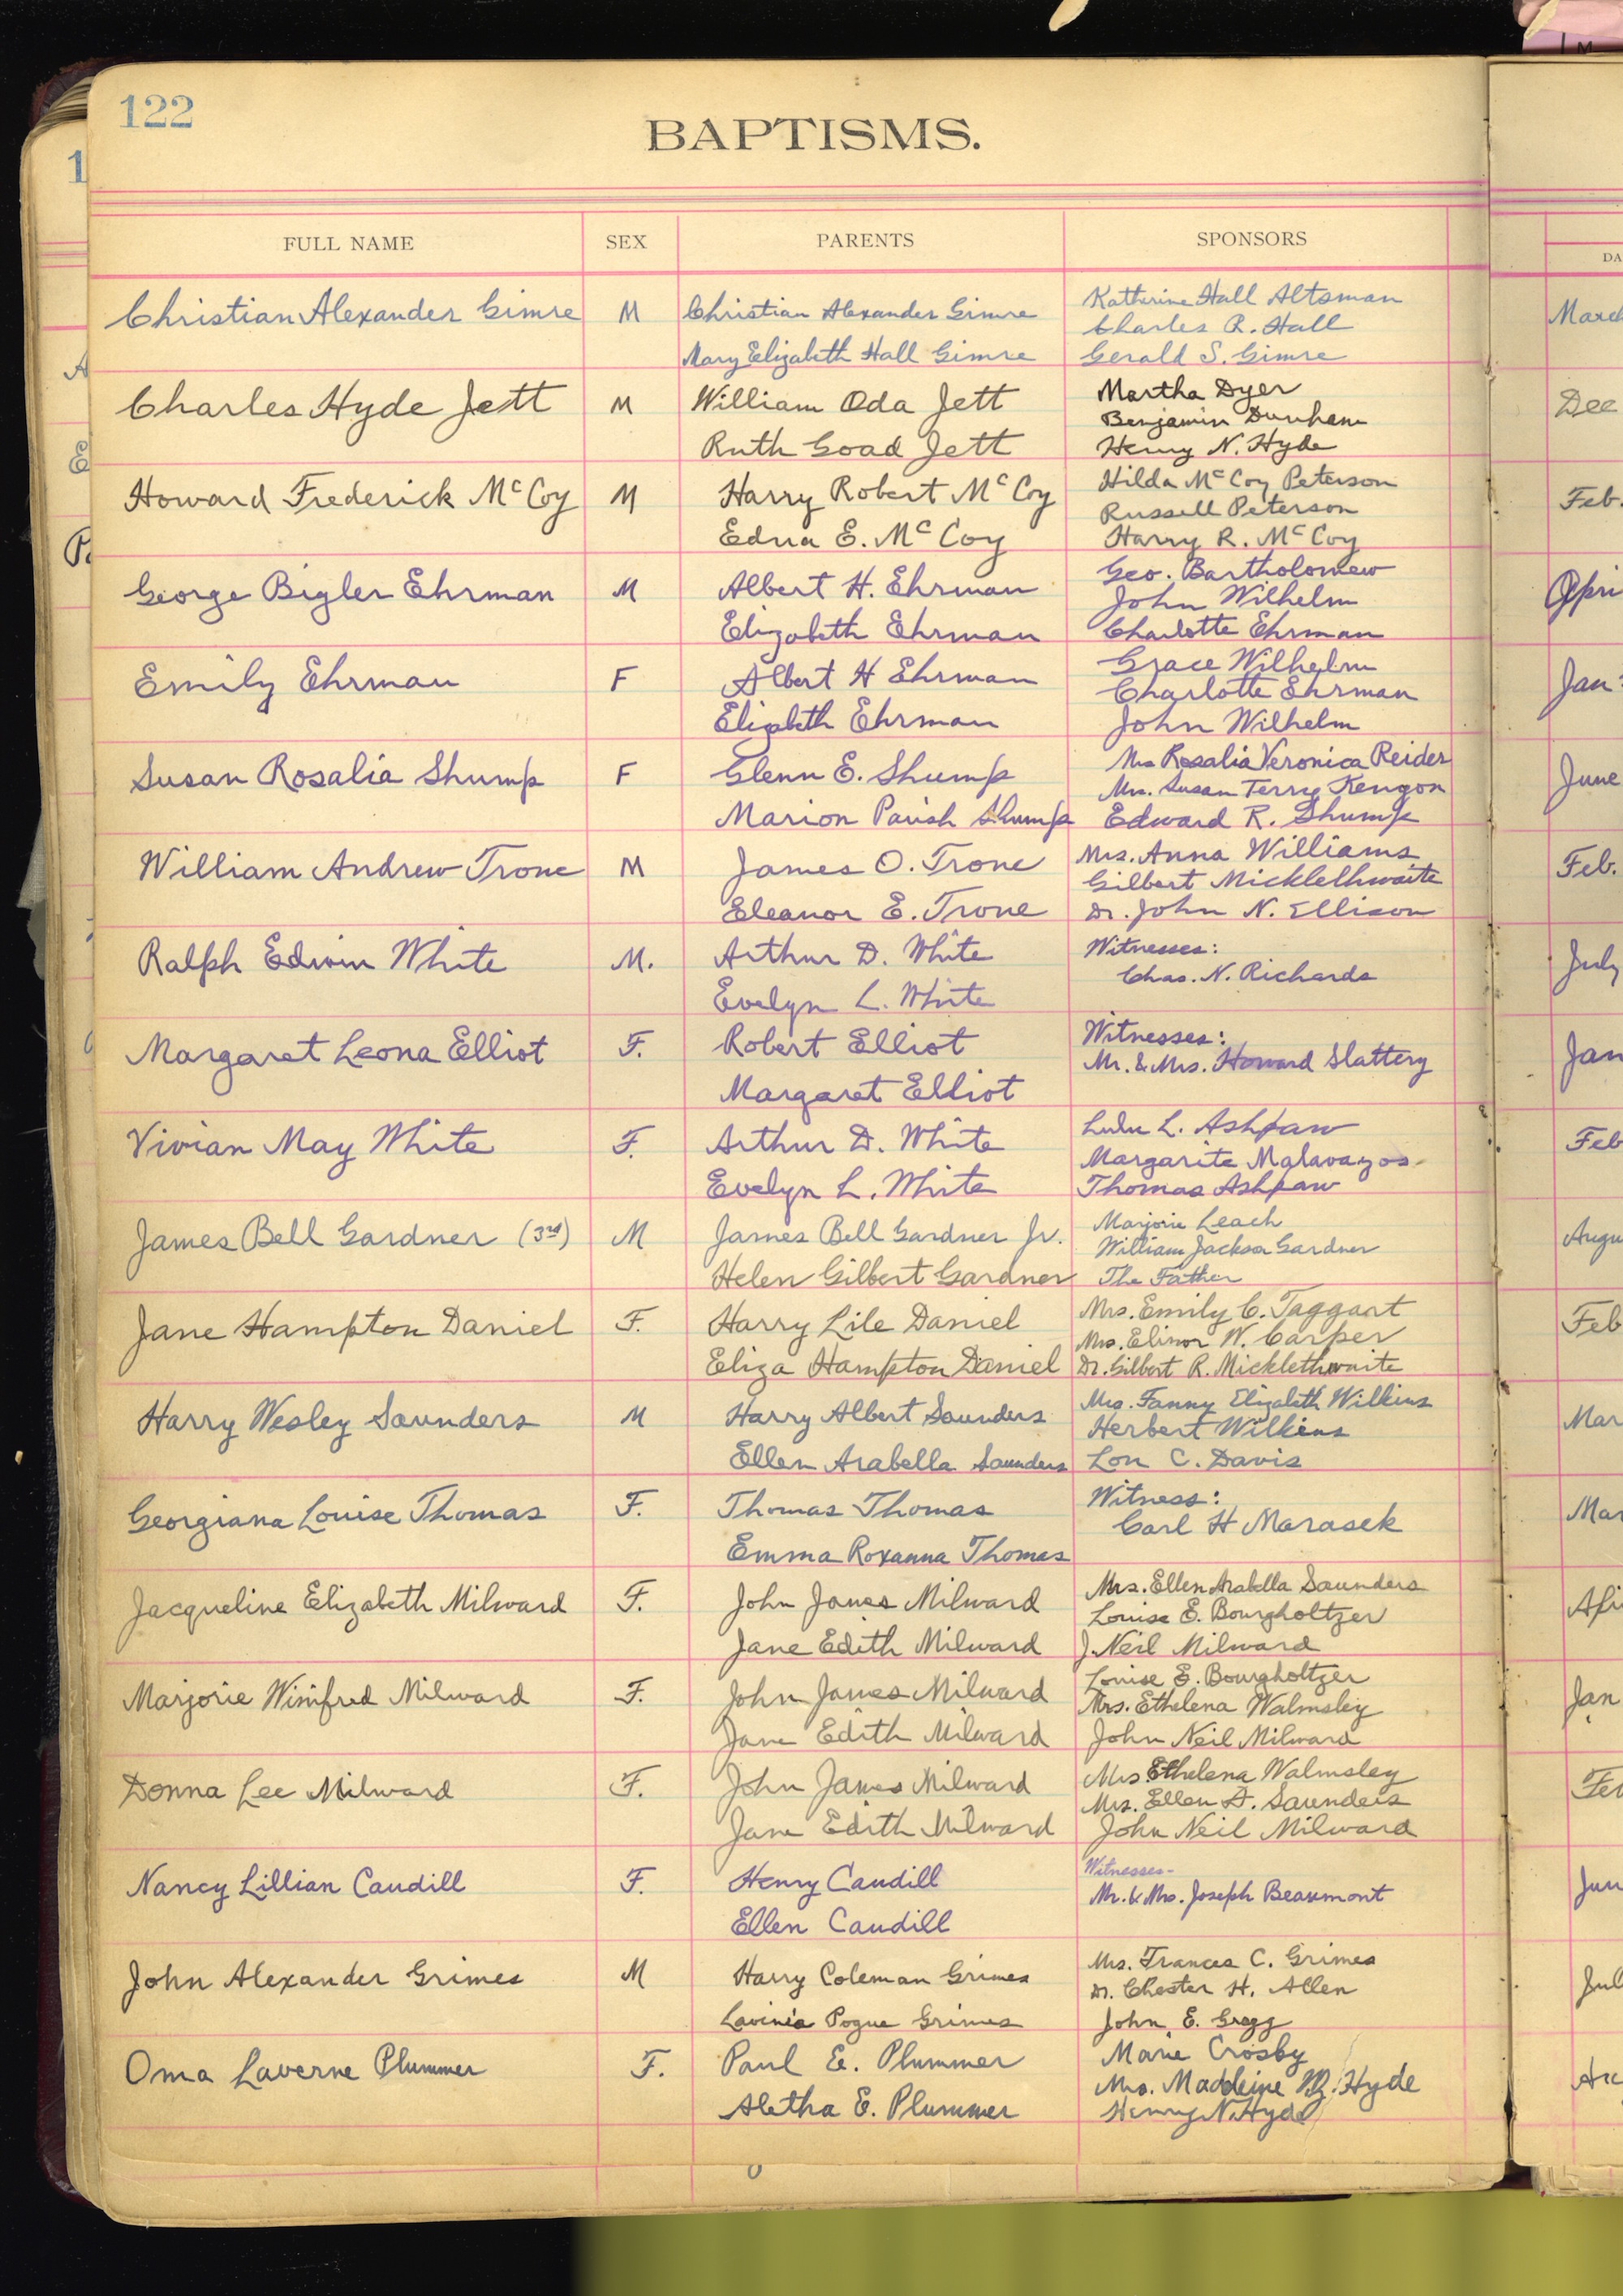 122
BAPTISMS.
FULL NAME SEX PARENTS SPONSORS
Christian Alexander Gimre M Christian Alexander Gimre Katherine Hall Altsman
Charles R. Hall
Mary Elizabeth Hall Gimre Gerald S. Gimre
Charles Hyde Jett M William Oda Jett Martha Dyer
Benjamin Dunham
Ruth Goad Jett Henry N. Hyde
Howard Frederick McCoy M Harry Robert McCoy Hilda McCoy Peterson
Russell Peterson
Edna E. McCoy Harry R. McCoy
George Bigler Ehrman M Albert H. Ehrman Geo. Bartholomew
John Wilhelm
Elizabeth Ehrman Charlotte Ehrman
Emily Ehrman F Albert H Ehrman Grace Wilhelm
Charlotte Ehrman
Elizabeth Ehrman John Wilhelm
Susan Rosalia Shump F Glenn E. Shump Mrs Rosalia Veronica Reider
Mrs. Susan Terry Kenyon
Marion Parish Shump Edward R. Shump
William Andrew Trone M James O. Trone Mrs. Anna Williams
Gilbert Micklethwaite
Eleanor E. Trone Dr. John N. Ellison
Ralph Edwin White M. Arthur D. White Witnesses:
Chas. N. Richards
Evelyn L. White
Margaret Leona Elliot F. Robert Elliot Witnesses:
Mr. & Mrs. Howard Slattery
Margaret Elliot
Vivian May White F. Arthur D. White Lulu L. Ashpaw
Margarite Malavazos
Evelyn L. White Thomas Ashpaw
James Bell Gardner (3rd) M James Bell Gardner Jr. Marjorie Leach
William Jackson Gardner
Helen Gilbert Gardner The Father
Jane Hampton Daniel F. Harry Lile Daniel Mrs. Emily C. Taggart
Mrs. Elinor W. Carper
Eliza Hampton Daniel Dr. Gilbert R. Micklethwaite
Harry Wesley Saunders M Harry Albert Saunders Mrs. Fanny Elizabeth Wilkins
Herbert Wilkins
Ellen Arabella Saunders Lon C. Davis
Georgiana Louise Thomas F. Thomas Thomas Witness:
Carl H Marasek
Emma Roxanna Thomas
Jacqueline Elizabeth Milward F. John James Milward Mrs. Ellen Arabella Saunders
Louise E. Bourgholtzer
Jane Edith Milward J. Neil Milward
Marjorie Winifred Milward F. John James Milward Louise E. Bourgholtzer
Mrs. Ethelena Walmsley
Jane Edith Milward John Neil Milward
Donna Lee Milward F. John James Milward Mrs Ethelena Walmsley
Mrs. Ellen A. Saunders
Jane Edith Milward John Neil Milward
Nancy Lillian Caudill F. Henry Caudill Witnesses-
Mr. & Mrs. Joseph Beaumont
Ellen Caudill
John Alexander Grimes M Harry Coleman Grimes Mrs. Frances C. Grimes
Dr. Chester H. Allen
Lavinia Pogue Grimes John E. Gregg
Oma Laverne Plummer F. Paul E. Plummer Marie Crosby
Mrs. Madeleine Hyde
Aletha E. Plummer Henry N. Hyde